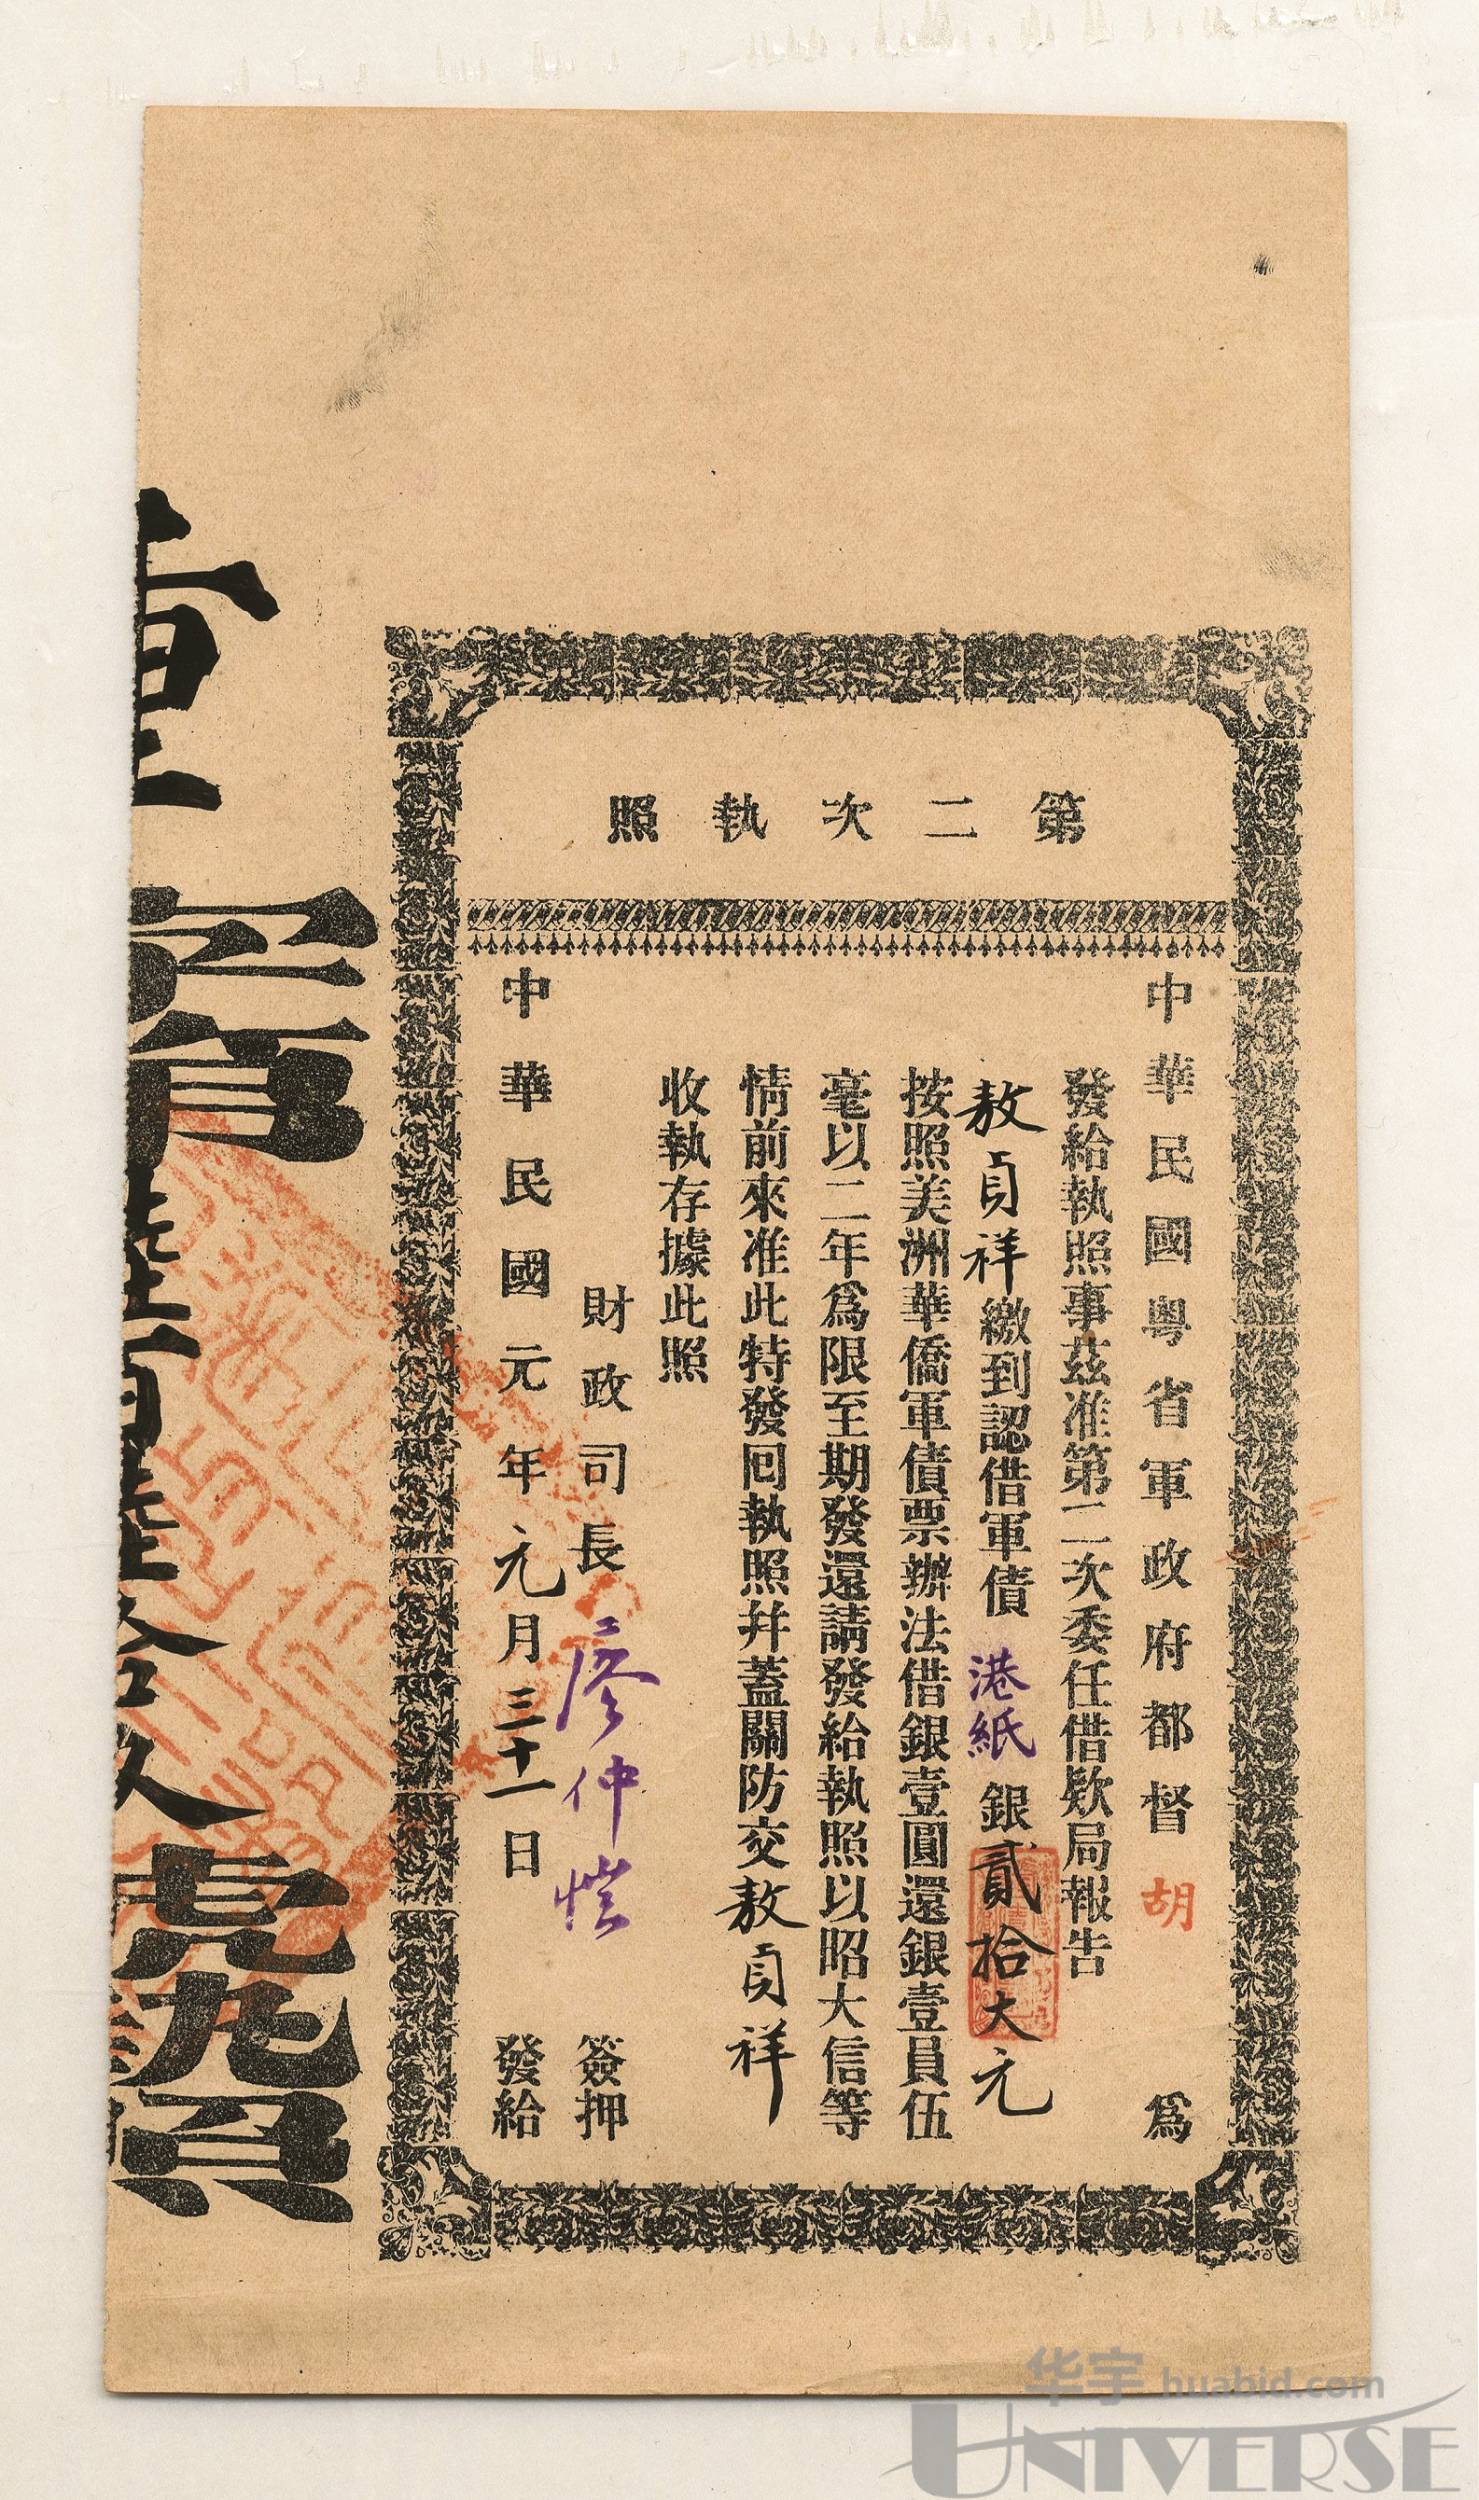 第二次執照
中華民國粵省軍政府都督 胡 爲
發給執照事茲准第二次委任借欵局報告
敖貞祥繳到認借軍債 港紙 銀貳拾大元
按照美洲華僑軍債票辦法借銀壹圓還銀壹員伍
毫以二年爲限至期發還請發給執照以昭大信等
情前來准此特發回執照并蓋關防交敖貞祥
收執存據此照
財政司長 廖仲愷 簽押
中華民國元年元月三十一日 發給
华宇 huabid.com
UNIVERSE